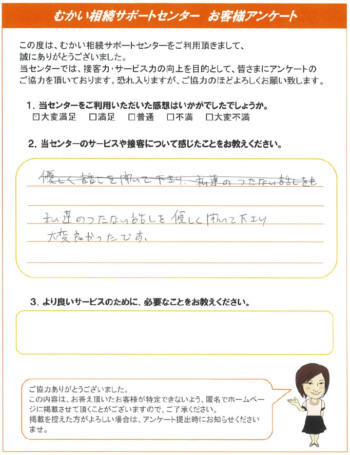 むかい相続サポートセンター お客様アンケート
この度は、むかい相続サポートセンターをご利用頂きまして、
誠にありがとうございました。
当センターでは、接客力・サービス力の向上を目的として、皆さまにアンケートの
ご協力を頂いております。恐れ入りますが、ご協力のほどよろしくお願い致します。
1. 当センターをご利用いただいた感想はいかがでしたでしょうか。
□大変満足 □満足 □普通 □不満 □大変不満
2. 当センターのサービスや接客について感じたことをお教えください。
優しく話しを聞いて下さり、私達のつたない話しをも
私達のつたない話しを優しく聞いて下さり
大変良かったです。
3. より良いサービスのために、必要なことをお教えください。
ご協力ありがとうございました。
この内容は、お答え頂いたお客様が特定できないよう、匿名でホームペー
ジに掲載させて頂くことがございますので、ご了承ください。
掲載を控えた方がよろしい場合は、アンケート提出時にお知らせください
ませ。